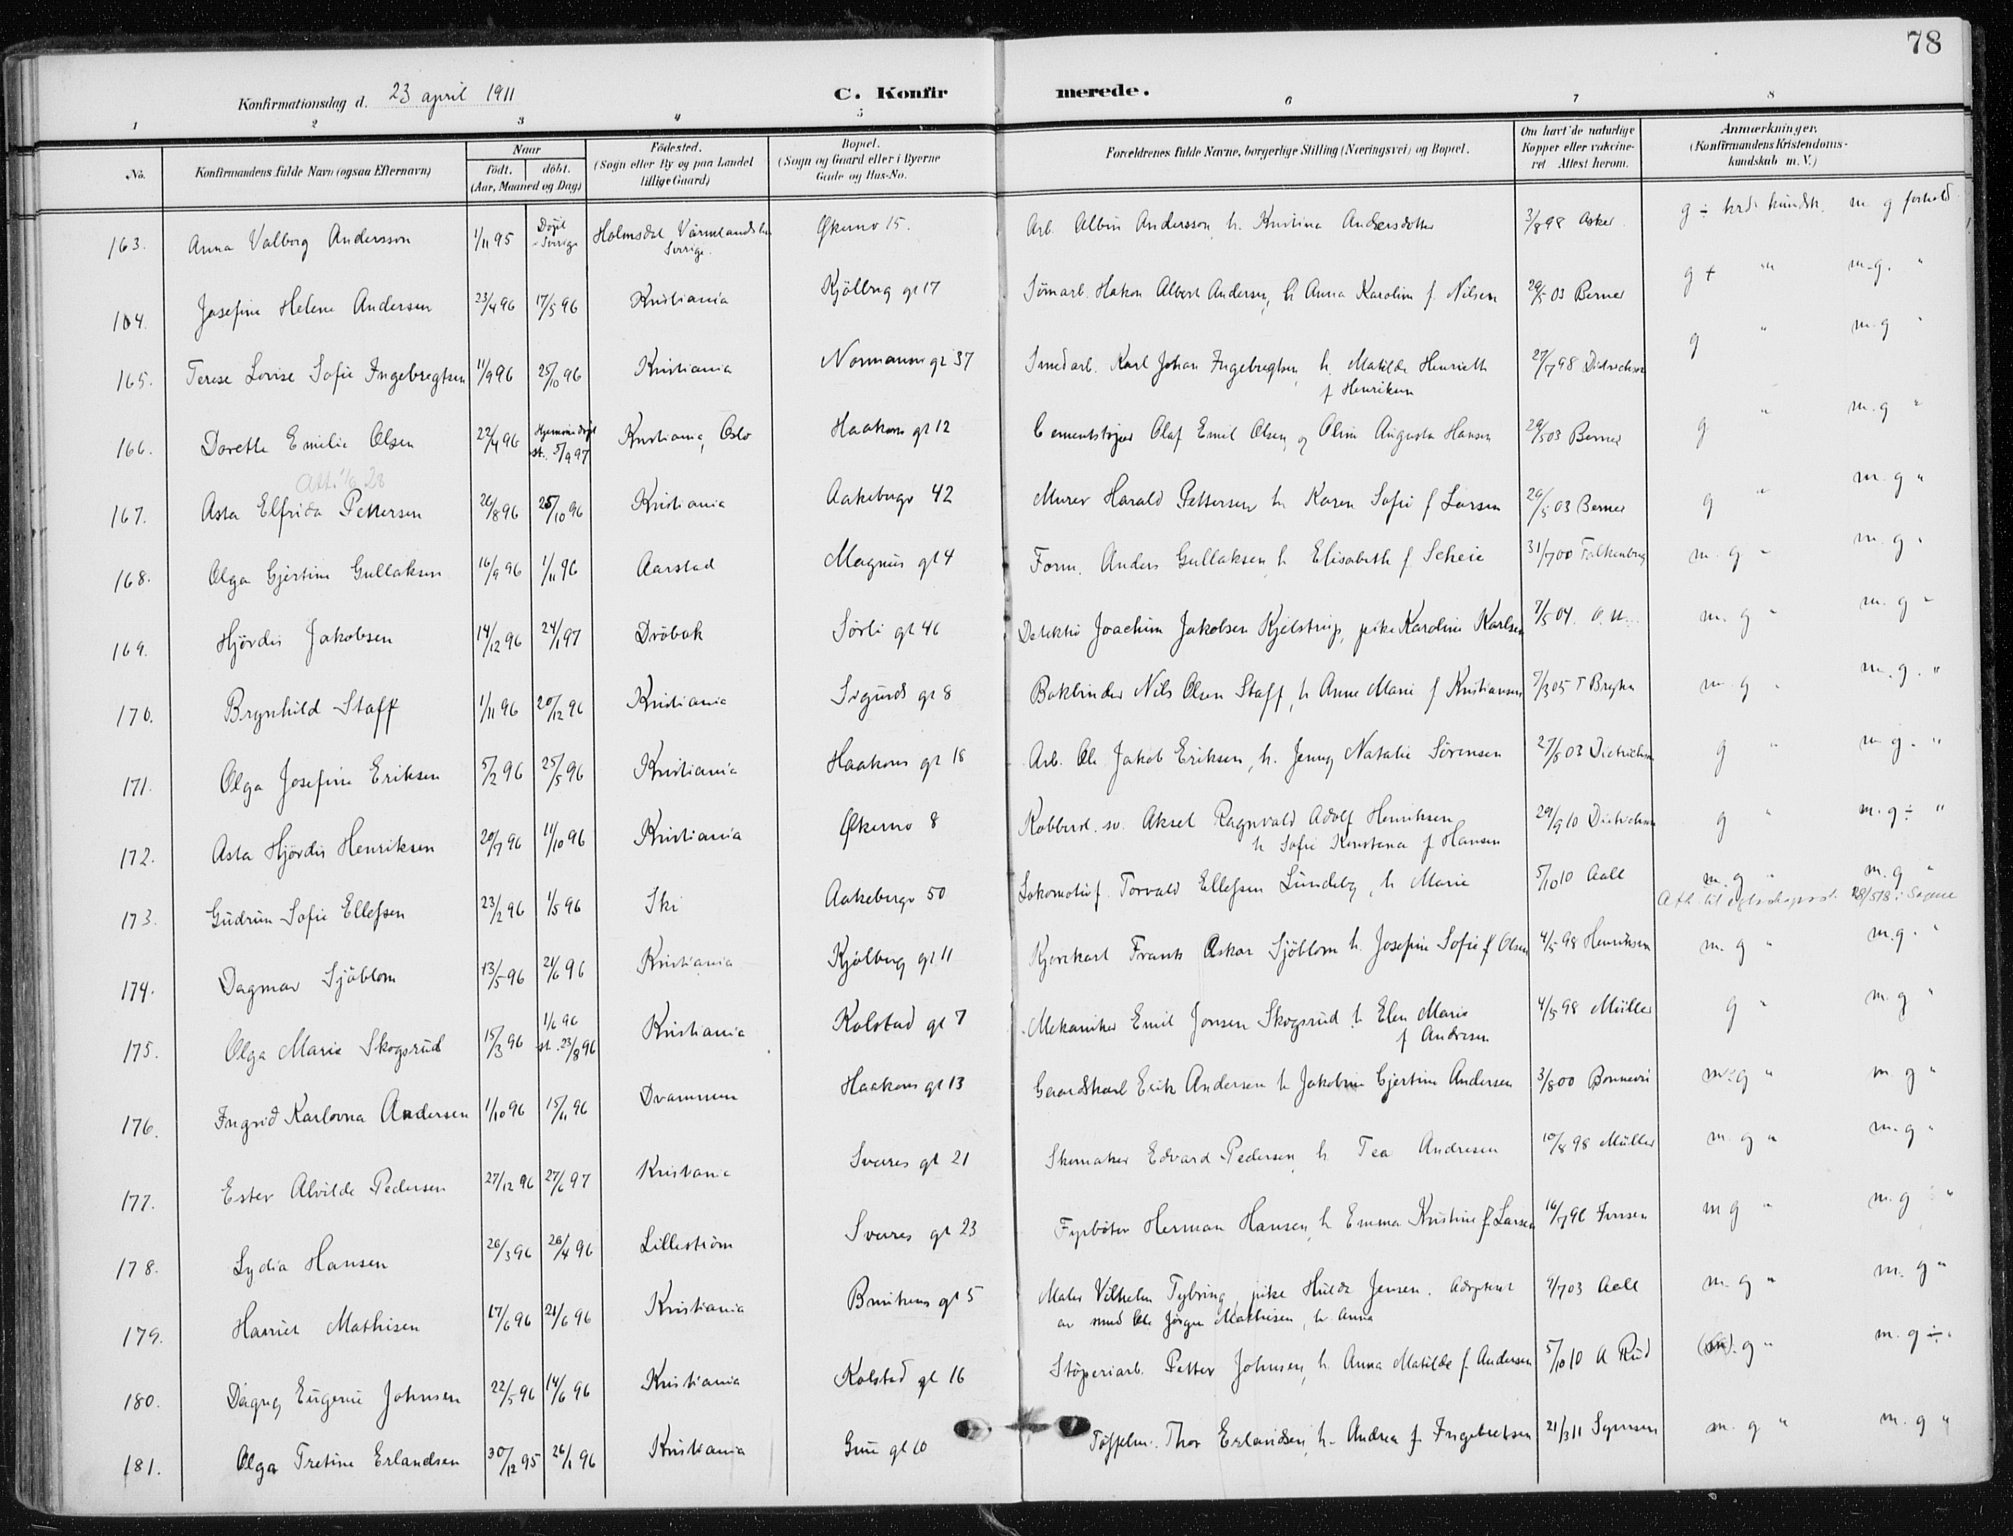 78
Konfirmationsdag d. 23 april 1911
C. Konfirmerede.
1 2 3 4 5 6 7 8
No. Konfirmandens fulde Navn (ogsaa Efternavn) Naar födt. döbt. (Aar, Maaned og Dag) Födested. (Sogn eller By og paa Landet tillige Gaard) Bopæl. (Sogn og Gaard eller i Byerne Gade og Hus-No. Forældrenes fulde Navne, borgerlige Stilling (Næringsvei) og Bopæl. Om havt de naturlige Kopper eller vakcineret Attest herom. Anmærkninger. (Konfirmandens Kristendomskundskab m. V.)
163. Anna Valborg Andersson 1/11 95 Döpt Sverige Holmsdal Värmlandslän Sverige. Økernv 15. Arb. Albin Andersson h. Kristina Andersdotter 3/8 98 Asker g ÷ krd. kundsk. m. g forhold
164. Josefine Helene Andersen 23/4 96 17/5 96 Kristiania Kjölberg gt 17 Hakon Albert Andersen, h Anna Karoline f. Nilsen 29/5 03 Berner g + " m.g. "
165. Terese Lovise Sofie Ingebregtsen 11/9 96 25/10 96 Kristiania Normanns gt 37 Smedarb. Karl Johan Ingebregtsen h. Matilde Henriette f Henriksen 27/7 98 Didrichsen g " m.g "
166. Dorette Emilie Olsen 22/4 96 Hjemmedöpt st. 5/9 97 Kristiania, Oslo Haakons gt 12 Cementstöper Olaf Emil Olsen og Oline Augusta Hansen 29/5 03 Berner g " m.g "
Att. 1/6 28
167. Asta Elfrida Pettersen 26/8 96 25/10 96 Kristiania Aakebergv 42 Murer Harald Pettersen h Karen Sofie f Larsen 29/5 03 Berner g " m g "
168. Olga Gjertine Gullaksen 16/9 96 1/11 96 Aarstad Magnus gt 4 Form. Anders Gullaksen h Elisabeth f Scheie 31/7 00 Falkenberg m. g " m. g "
169. Hjördis Jakobsen 14/12 96 24/1 97 Dröbak Sörli gt 46 Detektiv Joachim Jakobsen Kjelstrup, pike Karoline Karlsen 7/5 04. m. g " m. g "
170. Brynhild Staff 1/11 96 20/12 96 Kristiania Sigurds gt 8 Bokbinder Nils Olsen Staff, h Anne Marie f Kristiansen 7/3 05 m. g " m. g. "
171. Olga Josefine Eriksen 5/2 96 25/5 96 Kristiania Haakons gt 18 Arb. Ole Jakob Eriksen, h. Jenny Natalie Sörensen 27/8 03 Dietrichsen g " m g. "
172. Asta Hjördis Henriksen 20/7 96 11/10 96 Kristiania Økernv 8 Kobbersl. sv. Aksel Ragnvald Adolf Henriksen h Sofie Kristiana f Hansen 29/9 10 Dietrichsen g " m. g ÷ "
173. Gudrun Sofie Ellefsen 23/2 96 1/5 96 Ski Aakebergv 50 Lokomotivf. Torvald Ellefsen Lundeby, h Marie 5/10 10 Aall m. g " m. g "
Att. til egteskapsst. 28/5 18 i Sagene
174. Dagmar Sjöblom 13/5 96 21/6 96 Kristiania Kjölberg gt 11 Kjörekarl Frank Oskar Sjöblom h. Josefine Sofie f Olsen 4/5 98 Henriksen m. g " m.g. "
175. Olga Marie Skogsrud 15/3 96 1/6 96 st. 23/8 96 Kristiania Kolstad gt 7 Mekaniker Emil Jonsen Skogsrud h Elen Marie f Andresen 4/5 98 Müller g " m. g "
176. Ingrid Karlovna Andersen 1/10 96 15/11 96 Drammen Haakons gt 13 Gaardskarl Erik Andersen h Jakobine Gjertine Andersen 3/8 00 Bonnevie m. g " m g "
177. Ester Alvilde Pedersen 27/12 96 27/6 97 Kristiania Sverres gt 21 Skomaker Edvard Pedersen h. Tea Andresen 10/8 98 Müller m. g " m. g "
178. Lydia Hansen 26/3 96 26/4 96 Lilleström Sverres gt 23 Fyrböter Herman Hansen, h Emma Kristine f Larsen 16/7 96 Jensen m g " m. g "
179. Harriet Mathisen 17/6 96 21/6 96 Kristiania gt 5 Maler Vilhelm Tybring, pike Hulda Jensen. Adoptert av smed Ole Jörgen Mathisen, h. Anna 9/7 03 Aall m. g " m. g "
180. Dagny Eugenie Johnsen 22/5 96 14/6 96 Kristiania Kolstad gt 16 Stöperiarb. Petter Johnsen, h. Anna Matilde f. Andersen 5/10 10 A Rud (m). g " m. g ÷ "
181. Olga Tretine Erlandsen 30/12 95 26/1 96 Kristiania Grue gt 10 Töffelm. Thor Erlandsen, h. Andrea f. Ingebretsen 21/3 11 m. g " m. g "